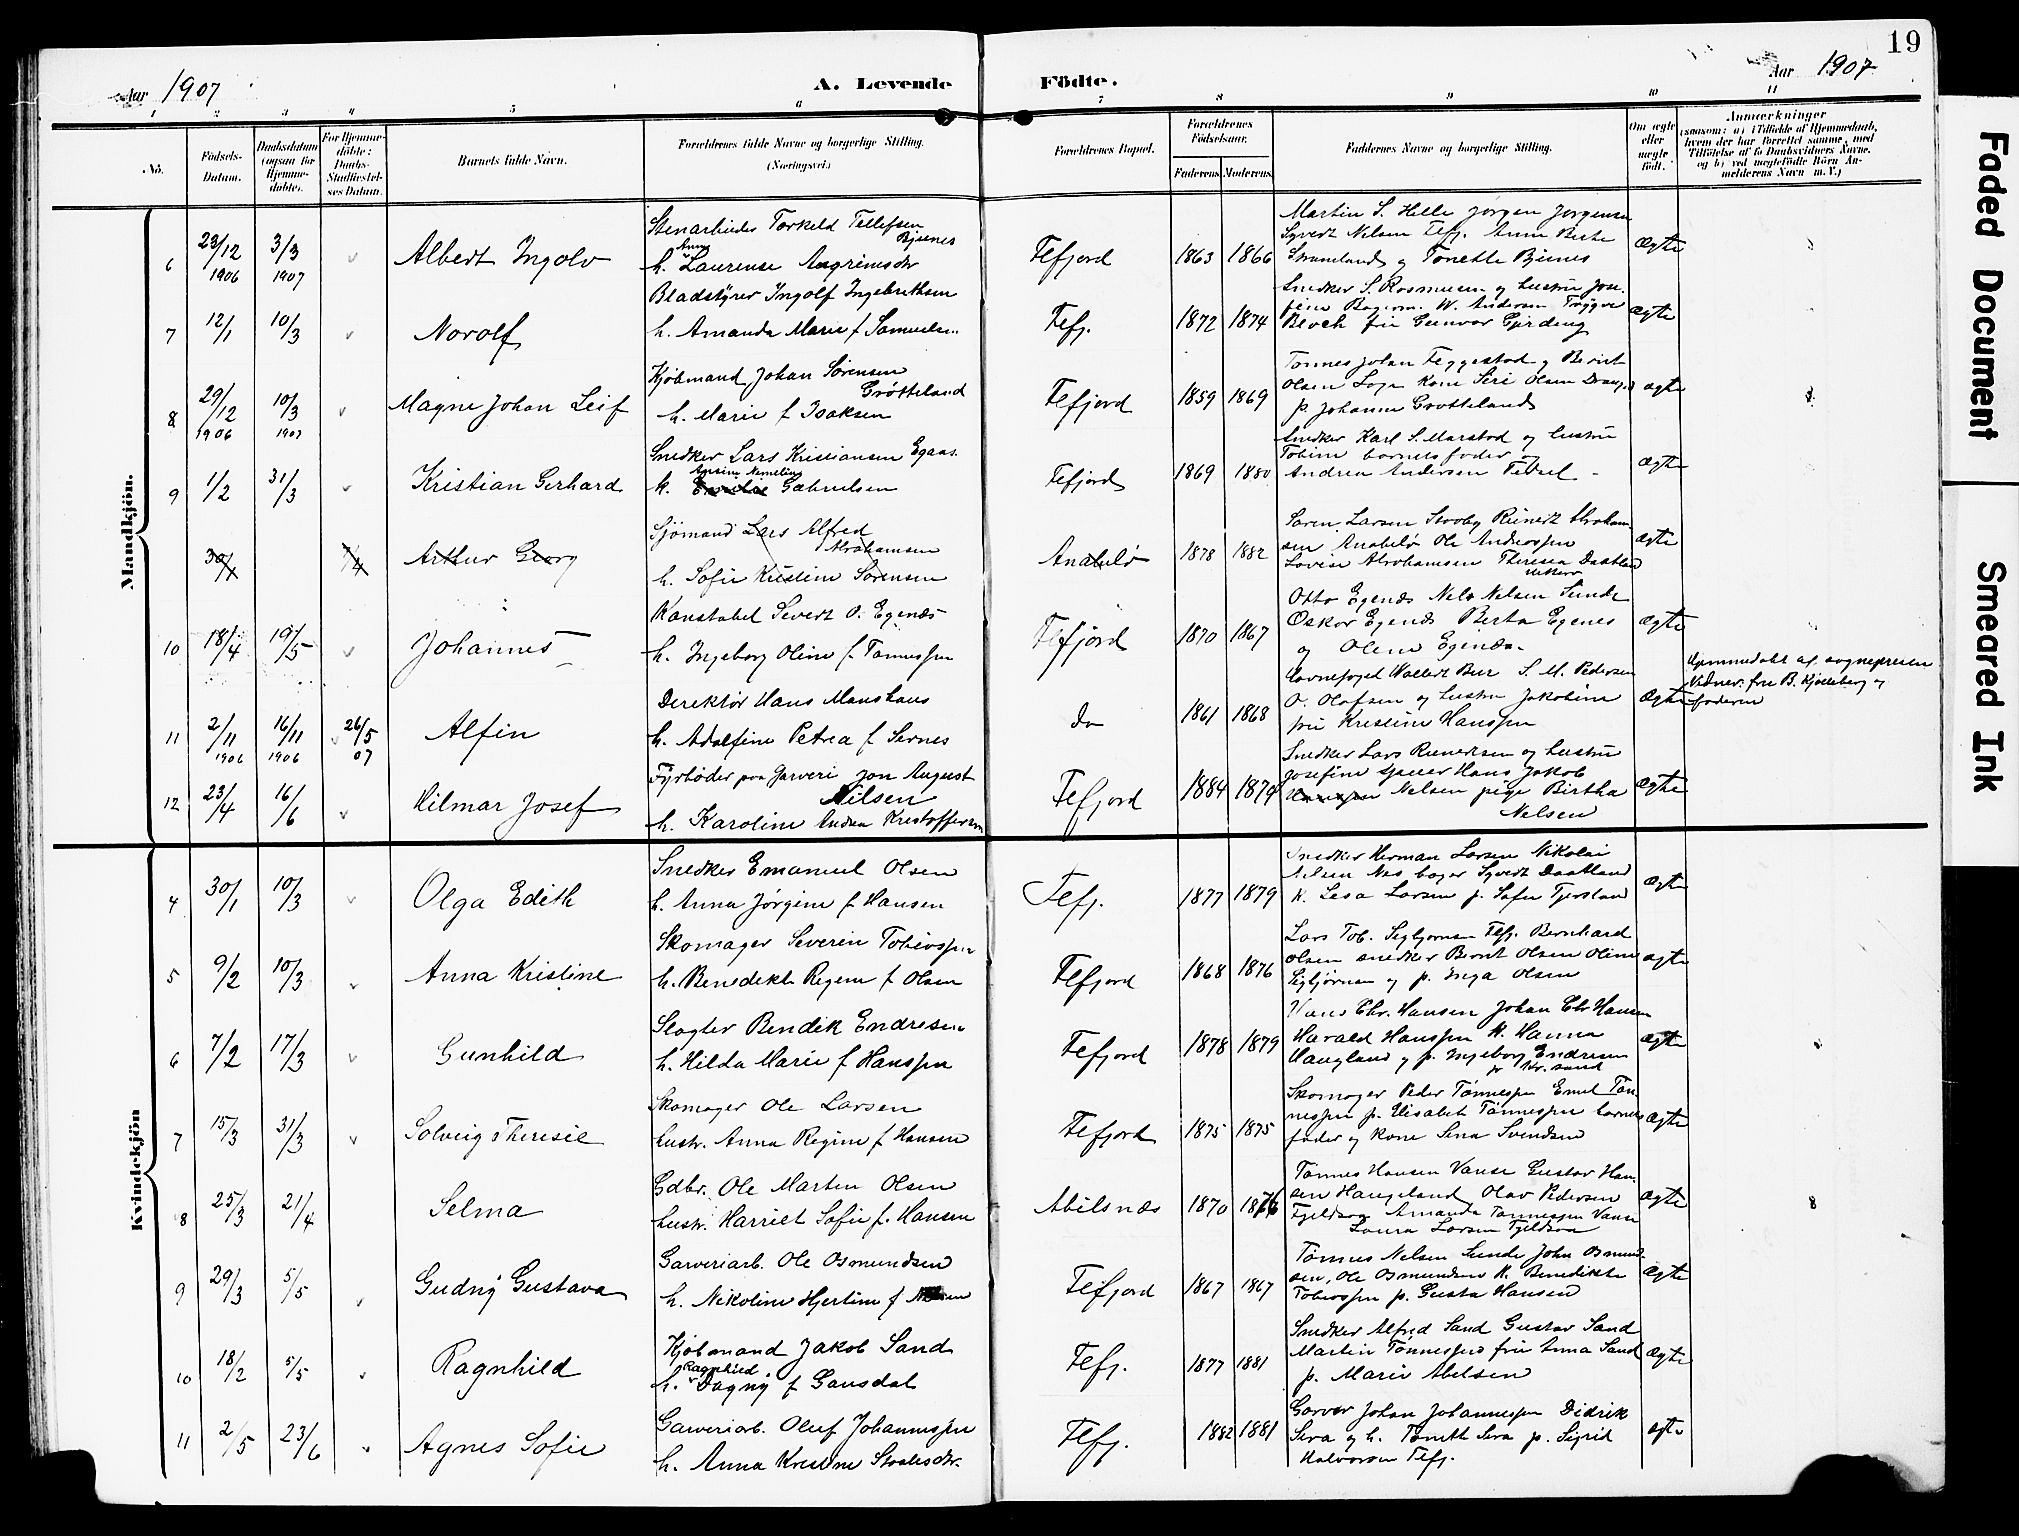 19
Aar 1907
A. Levende
Födte.
Aar 1907
1 2 3 4 5 6 7 8 9 10 11
No.
Födsels-Datum.
Daabsdatum (ogsaa for Hjemmedöbte).
For Hjemmedöbte: Daabs-Stadfæstelses Datum.
Barnets fulde Navn.
Forældrenes fulde Navne og borgerlige Stilling.
(Næringsvei.)
Forældrenes Bopæl.
Forældrenes Födselsaar.
Faderens. Moderens.
Faddernes Navne og borgerlige Stilling.
Om ægte eller uægte födt.
Anmærkninger
(saasom: a) i Tilfælde af Hjemmedaab, hvem der har forrettet samme, med Tilföielse af to Daabsvidners Navne, og b) ved uægtefödte Börn Anmelderens Navn m. V.)
Mandkjön.
6 23/12 1906 3/3 1907 Albert Ingolv
Stenarbeider Torkeld Tellefsen
Bjørnes
h. Anna Laurense Asgrimsdtr
Flefjord 1863 1866
Martin S. Helle Jørgen Jørgensen
Syvert Nelsen Flefj. Anne Berte
Strømland og Tonette Bjørnes
Ægte
7 12/1 10/3 Norolf
Bladstyrer Ingolf Ingebrethsen
h. Amanda Marie f. Samuelsen
Flefj. 1872 1874
Snedker S. Rasmussen og hustru Jose-
W. Andersen Trygve
Bloch frk Gunvor Gjerding
Ægte
8 29/12 1906 10/3 1907 Magne Johan Leif
Kjøbmand Johan Sørensen
Grøtteland
h. Marie f. Isaksen
Flefjord 1859 1869
Tønnes Johan Feggestad og Bernt
Olsen Loge Kone Siri Olsen Drange
p. Johanne Grøtteland
ægte
9 1/2 31/3 Kristian Gerhard
Snedker Lars Kristiansen Egaas.
h. Gabrielsen
Flefjord 1869 1880
Snedker Karl S. Marstad og hustru
Tobine barnets fader og
Andrea Andersen
ægte
30/1 7/4 Arthur Georg
Sjømand Lars Alfred
Abrahamsen
h. Sofie Kristine Sørensen
Anabelø 1878 1882
Søren Larsen Stooby Reinert Abraham-
sen Anabelø Ole Andreassen
Lovise Abrahamsen Theresea Daatland
ægte
10 18/4 19/5 Johannes
Konstabel Severt O. Egenæs
h. Ingeborg Oline f. Tønnessen
Flefjord 1870 1867
Otto Egenæs Nels Nelsen Sunde
Oskar Egenæs Berta Egenes
og Olene Egenæs.
Ægte
11 2/11 1906 16/11 1906 26/5 07 Alfin
Direktør Hans Monshaus
h. Adolfine Petrea f. Sernes
do 1861 1868
Havnefoged Wallert Bur S. M. Pedersen
O. Olafsen og hustru Jakobine
fru Kristine Hanssen
Ægte
Hjemmedøbt af sognepresten
Vidner: fru B. Kjølleberg og
faderen
12 23/4 16/6 Hilmar Josef
Fyrbøder paa Garveri Jon August
Nilsen
h. Karoline Andrea Kristoffersen
Flefjord 1884 1879
Snedker Lars Reinertsen og hustru
Josefine Hans Jakob
Nelsen pige Birtha
Nelsen
Ægte
Kvindekjön
4 30/1 10/3 Olga Edith
Snedker Emanuel Olsen
h. Anna Jørgine f. Hansen
Flefj. 1877 1879
Snedker Herman Larsen Nikolai
Nelsen Næs bager Syvert Daatland
K. Lesa Larsen p. Sofie Tjersland
Ægte
5 9/2 10/3 Anna Kristine
Skomager Severin Tobiassen
h. Benedikte Regine f. Olsen
Flefjord 1868 1876
Lars Tob. Sigbjørnsen Flefj. Bernhard
Olsen snedker Bernt Olsen Oline
Sigbjørnsen og p. Inga Olsen
ægte
6 7/2 17/3 Gunhild
Slagter Bendik Endresen
h. Hilda Marie f. Hanssen
Flefjord 1878 1879
Hans Chr. Hansen Johan Chr Hansen
Harald Hanssen K. Hanna
Haugland og p. Ingeborg Endresen
Kr. sand
ægte
7 15/3 31/3 Solveig Theresie
Skomager Ole Larsen
hustr. Anna Regine f. Hansen
Flefjord 1875 1875
Skomager Peder Tønnessen Emil Tøn-
nessen p. Elisabet Tønnessen barnets
fader og Kone Sina Svendsen
Ægte
8 25/3 21/4 Selma
Gdbr. Ole Martin Olsen
hustr. Harriet Sofie f. Hansen
Abilsnæs 1870 1876
Tønnes Hansen Vanse Gustav Han-
sen Haugeland Olav Pedersen
Fjeldsaa Amanda Tønnessen Vanse
Laura Larsen Fjeldsaa
Ægte 8
9 29/3 5/5 Gudny Gustava
Garveriarb. Ole Osmundsen
h. Nikoline Hjertine f.
Flefjord 1867 1867
Tønnes Nelsen Sunde John Osmund-
sen, Ole Osmundsen K. Benedikte
Tobiassen p. Gusta Hansen
Ægte
10 18/2 5/5 Ragnhild
Kjøbmand Jakob Sand
h. Ragnhild Dagny f. Gausdal
Flefj. 1877 1881
Snedker Alfred Sand Gustav Sand
Martin Tønnessen fru Anna Sand
p. Marie Abelsen
Ægte
11 2/5 23/6 Agnes Sofie
Garveriarb. Oluf Johannessen
h. Anna Kristine Staalesdtr.
Flefj. 1882 1881
Garver Johan Johannessen Didrik
Sira og h. Tomith Sira p. Sigrid
Halvorsen Flefj.
ægte
Faded Document
Smeared Ink